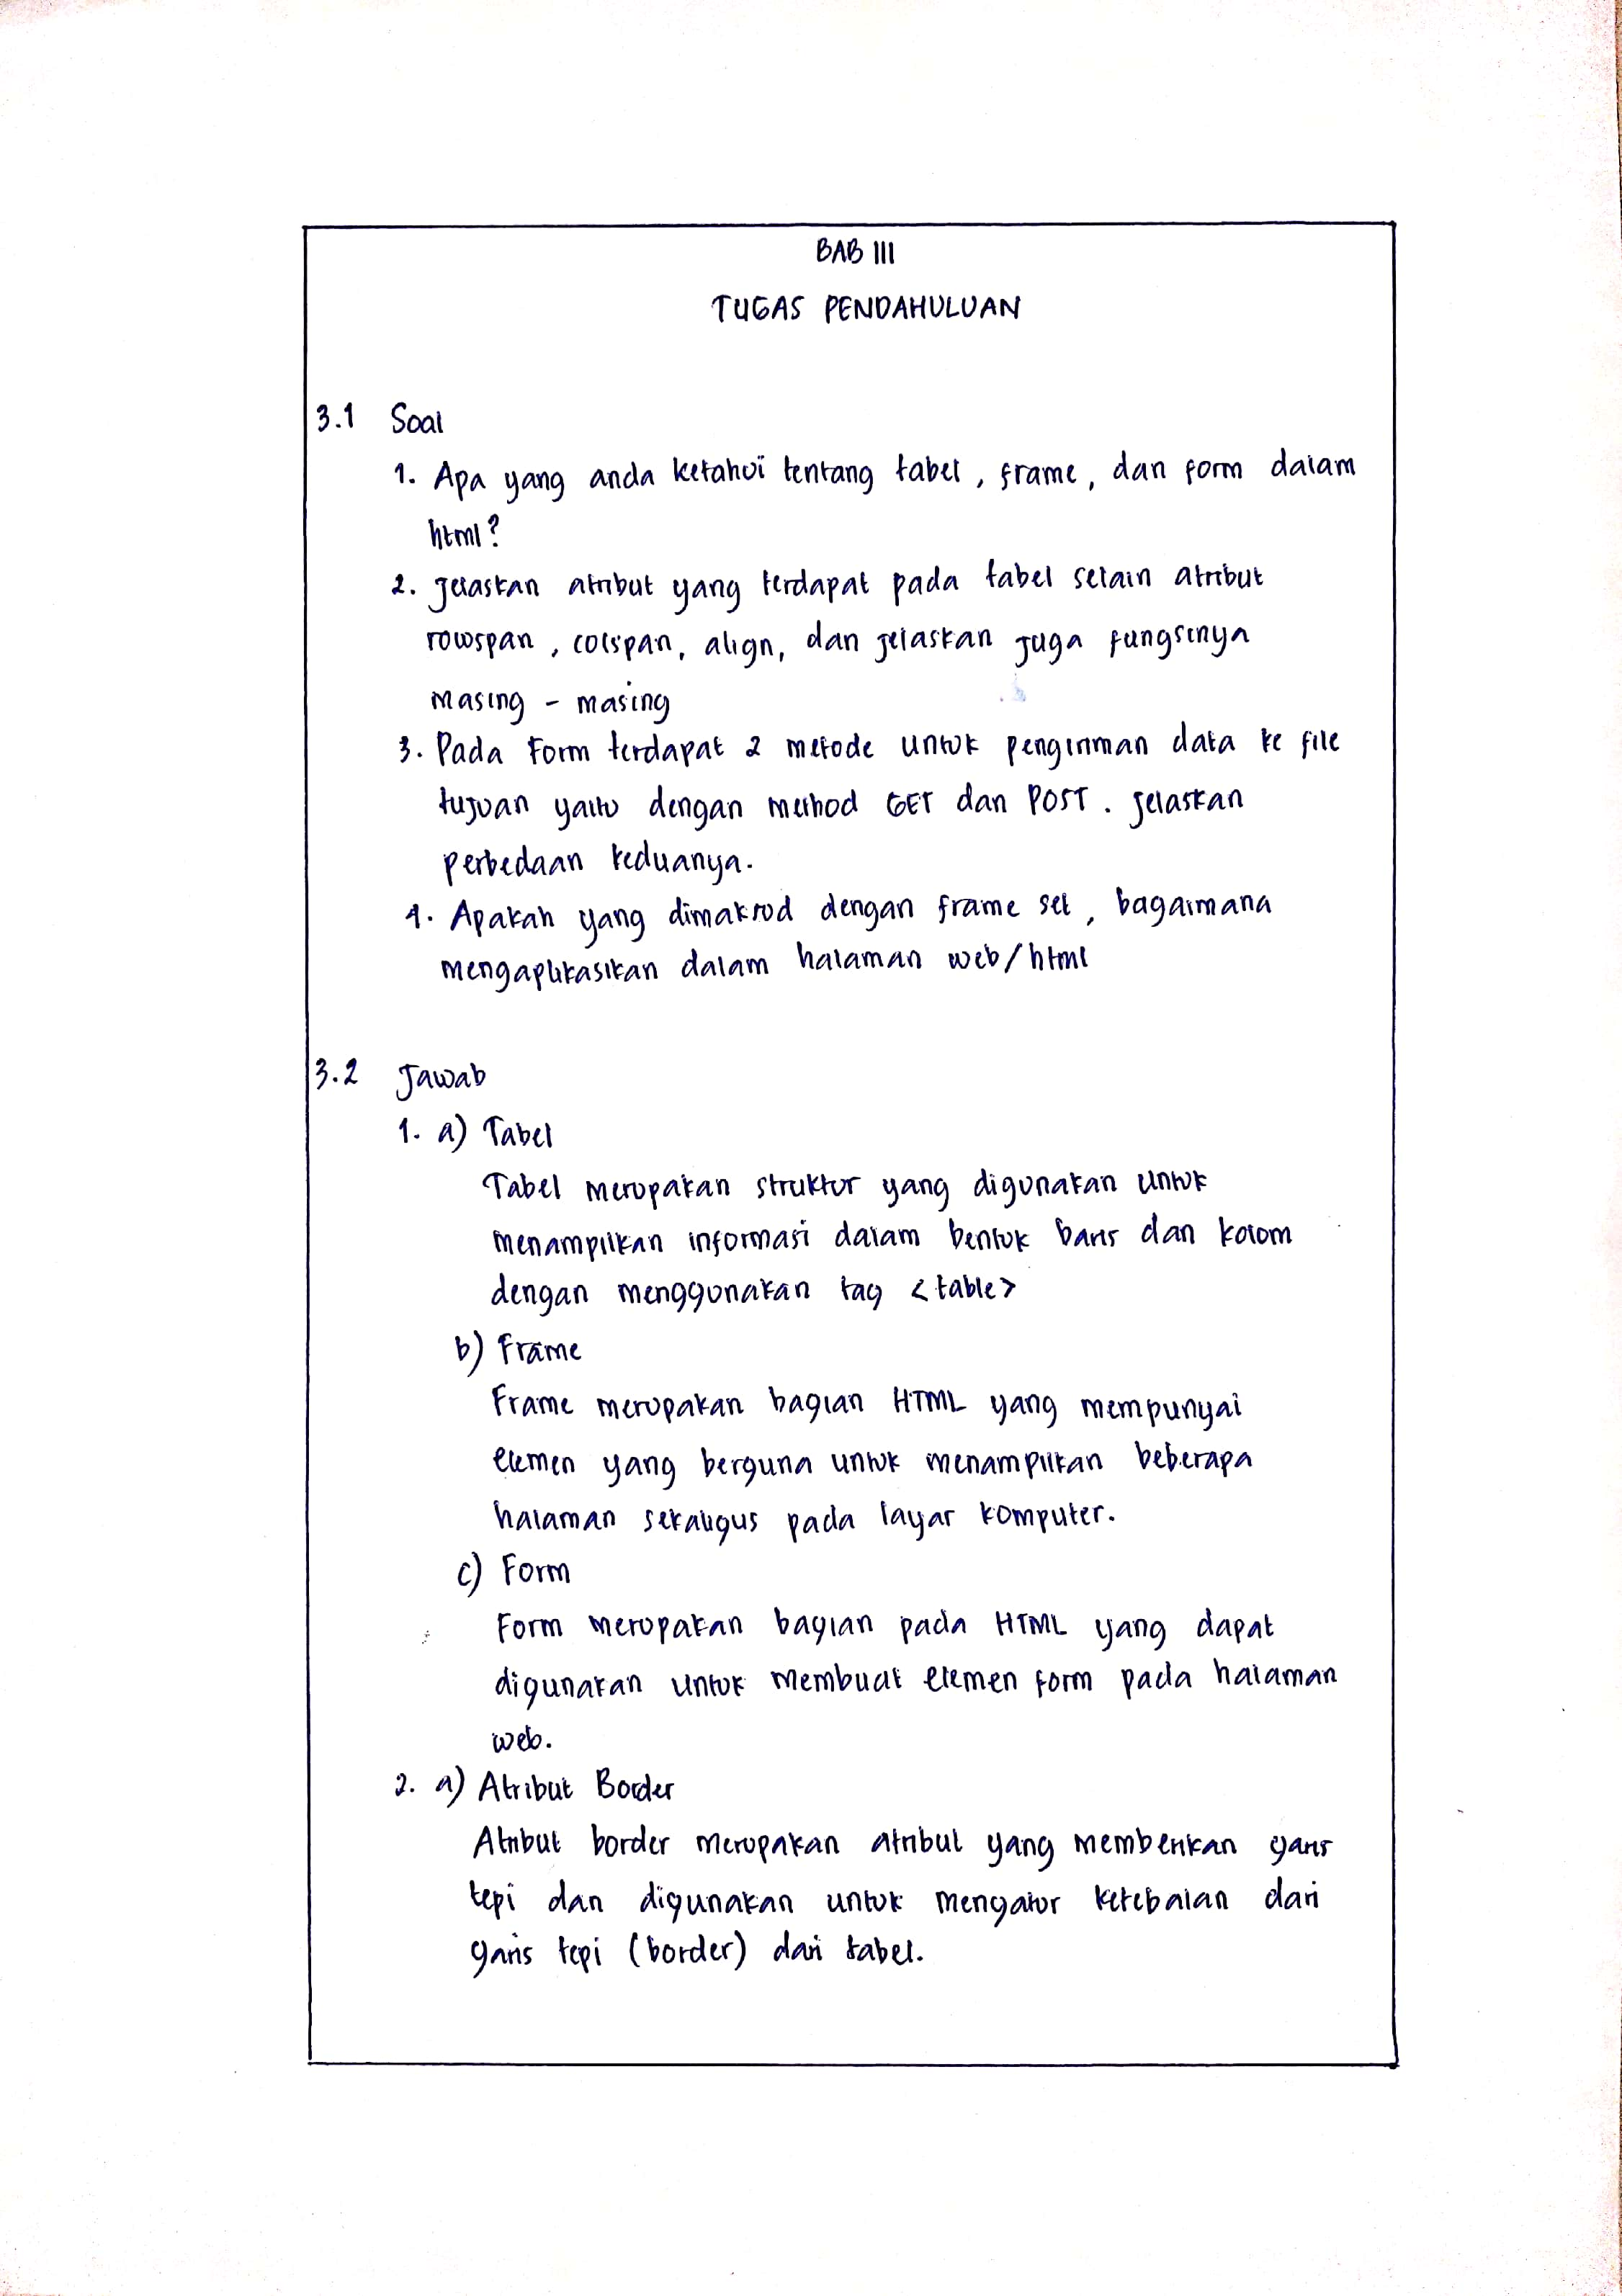 BAB III
TUGAS PENDAHULUAN
3.1 Soal
1. Apa yang anda ketahui tentang tabel, frame, dan form dalam
html?
2. Jelaskan atribut yang terdapat pada tabel selain atribut
rowspan, colspan, align, dan jelaskan juga fungsinya
masing - masing
3. Pada Form terdapat 2 metode untuk pengiriman data ke file
tujuan yaitu dengan method GET dan POST. Jelaskan
perbedaan keduanya.
4. Apakah yang dimaksud dengan frame set, bagaimana
mengaplikasikan dalam halaman web/html
3.2 Jawab
1. a) Tabel
Tabel merupakan struktur yang digunakan untuk
menampilkan informasi dalam bentuk baris dan kolom
dengan menggunakan tag <table>
b) Frame
Frame merupakan bagian HTML yang mempunyai
elemen yang berguna untuk menampilkan beberapa
halaman sekaligus pada layar komputer.
c) Form
Form merupakan bagian pada HTML yang dapat
digunakan untuk membuat elemen form pada halaman
web.
2. a) Atribut Border
Atribut border merupakan atribut yang memberikan garis
tepi dan digunakan untuk mengatur ketebalan dari
garis tepi (border) dari tabel.